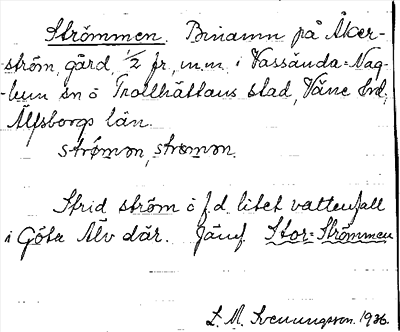 Strömmen. Binamn på Åker-
ström, gård, 1/2 fr, m.m. i Vassända-Nag-
lum sn o Trollhättans stad, Väne hd,
Älfsborgs län.
strǿmən, stromən.
Strid ström o f.d. litet vattenfall
i Göta Älv där. Jämf. Stor-Strömmen
L. M. Svenungsson. 1936.